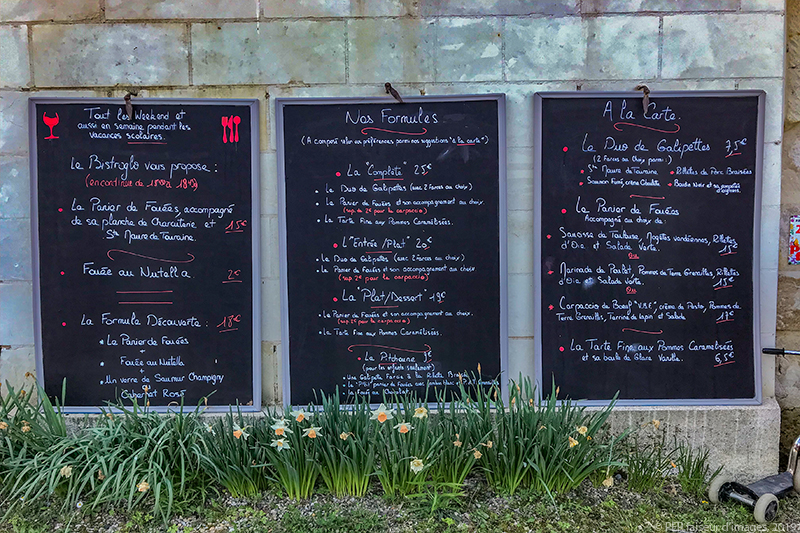 Tout les Weekend et
aussi en semaine pendant les
vacances scolaires.
Le Bistroglo vous propose :
(en continue de 11h00 à 18h30)
Le Panier de Fouées, accompagné
de sa planche de Charcuterie et
Ste Maure de Touraine. 15€
Fouée au Nutella 2€
La Formule Découverte : 18€
La Panier de Fouées
Fouée au Nutella
Un verre de Saumur Champigny
Cabernet Rosé
Nos Formules
(A composé selon vos préférences parmi nos suggestions "à la carte")
La "Complète" 25€
Le Duo de Galipettes (avec 2 farces au choix)
Le Panier de Fouées et son accompagnement au choix.
(sup. de 2€ pour le carpaccio)
La Tarte Fine aux Pommes Caramélisées.
L'"Entrée/Plat" 20€
Le Duo de Galipettes (avec 2 farces au choix)
Le Panier de Fouées et son accompagnement au choix
(sup. 2€ pour le carpaccio)
La "Plat/Dessert" 19€
Le Panier de Fouées et son accompagnement au choix.
(sup 2€ pour le carpaccio)
La Tarte Fine aux Pommes Caramélisées.
La Pitchoune 9€
(pour les enfants seulement)
Une Galipette Farcie à la Rillette
Le "P'tit" panier de Fouées
A la Carte.
Le Duo de Galipettes 7,5€
(2 Farces au choix parmi :
Ste Maure de Touraine
Rillettes de Porc Braisées
Saumon Fumé, crème Ciboulette
Boudin Noir et ses pommes
Le Panier de Fouées
Accompagné au choix de :
Saucisse de Toulouse, Mogettes vendéennes, Rillettes
d'Oie et Salade Verte. 15€
ou
Marinade de Poulet, Pommes de Terre Grenailles, Rillettes
d'Oie et Salade verte. 15€
ou
Carpaccio de Boeuf "V.B.F", crème de Pesto, Pommes de
Terre Grenailles, Terrine de lapin et Salade 17€
La Tarte Fine aux Pommes Caramélisées
et sa boule de Glace Vanille. 6,5€
© PEP faiseur d'images, 2019